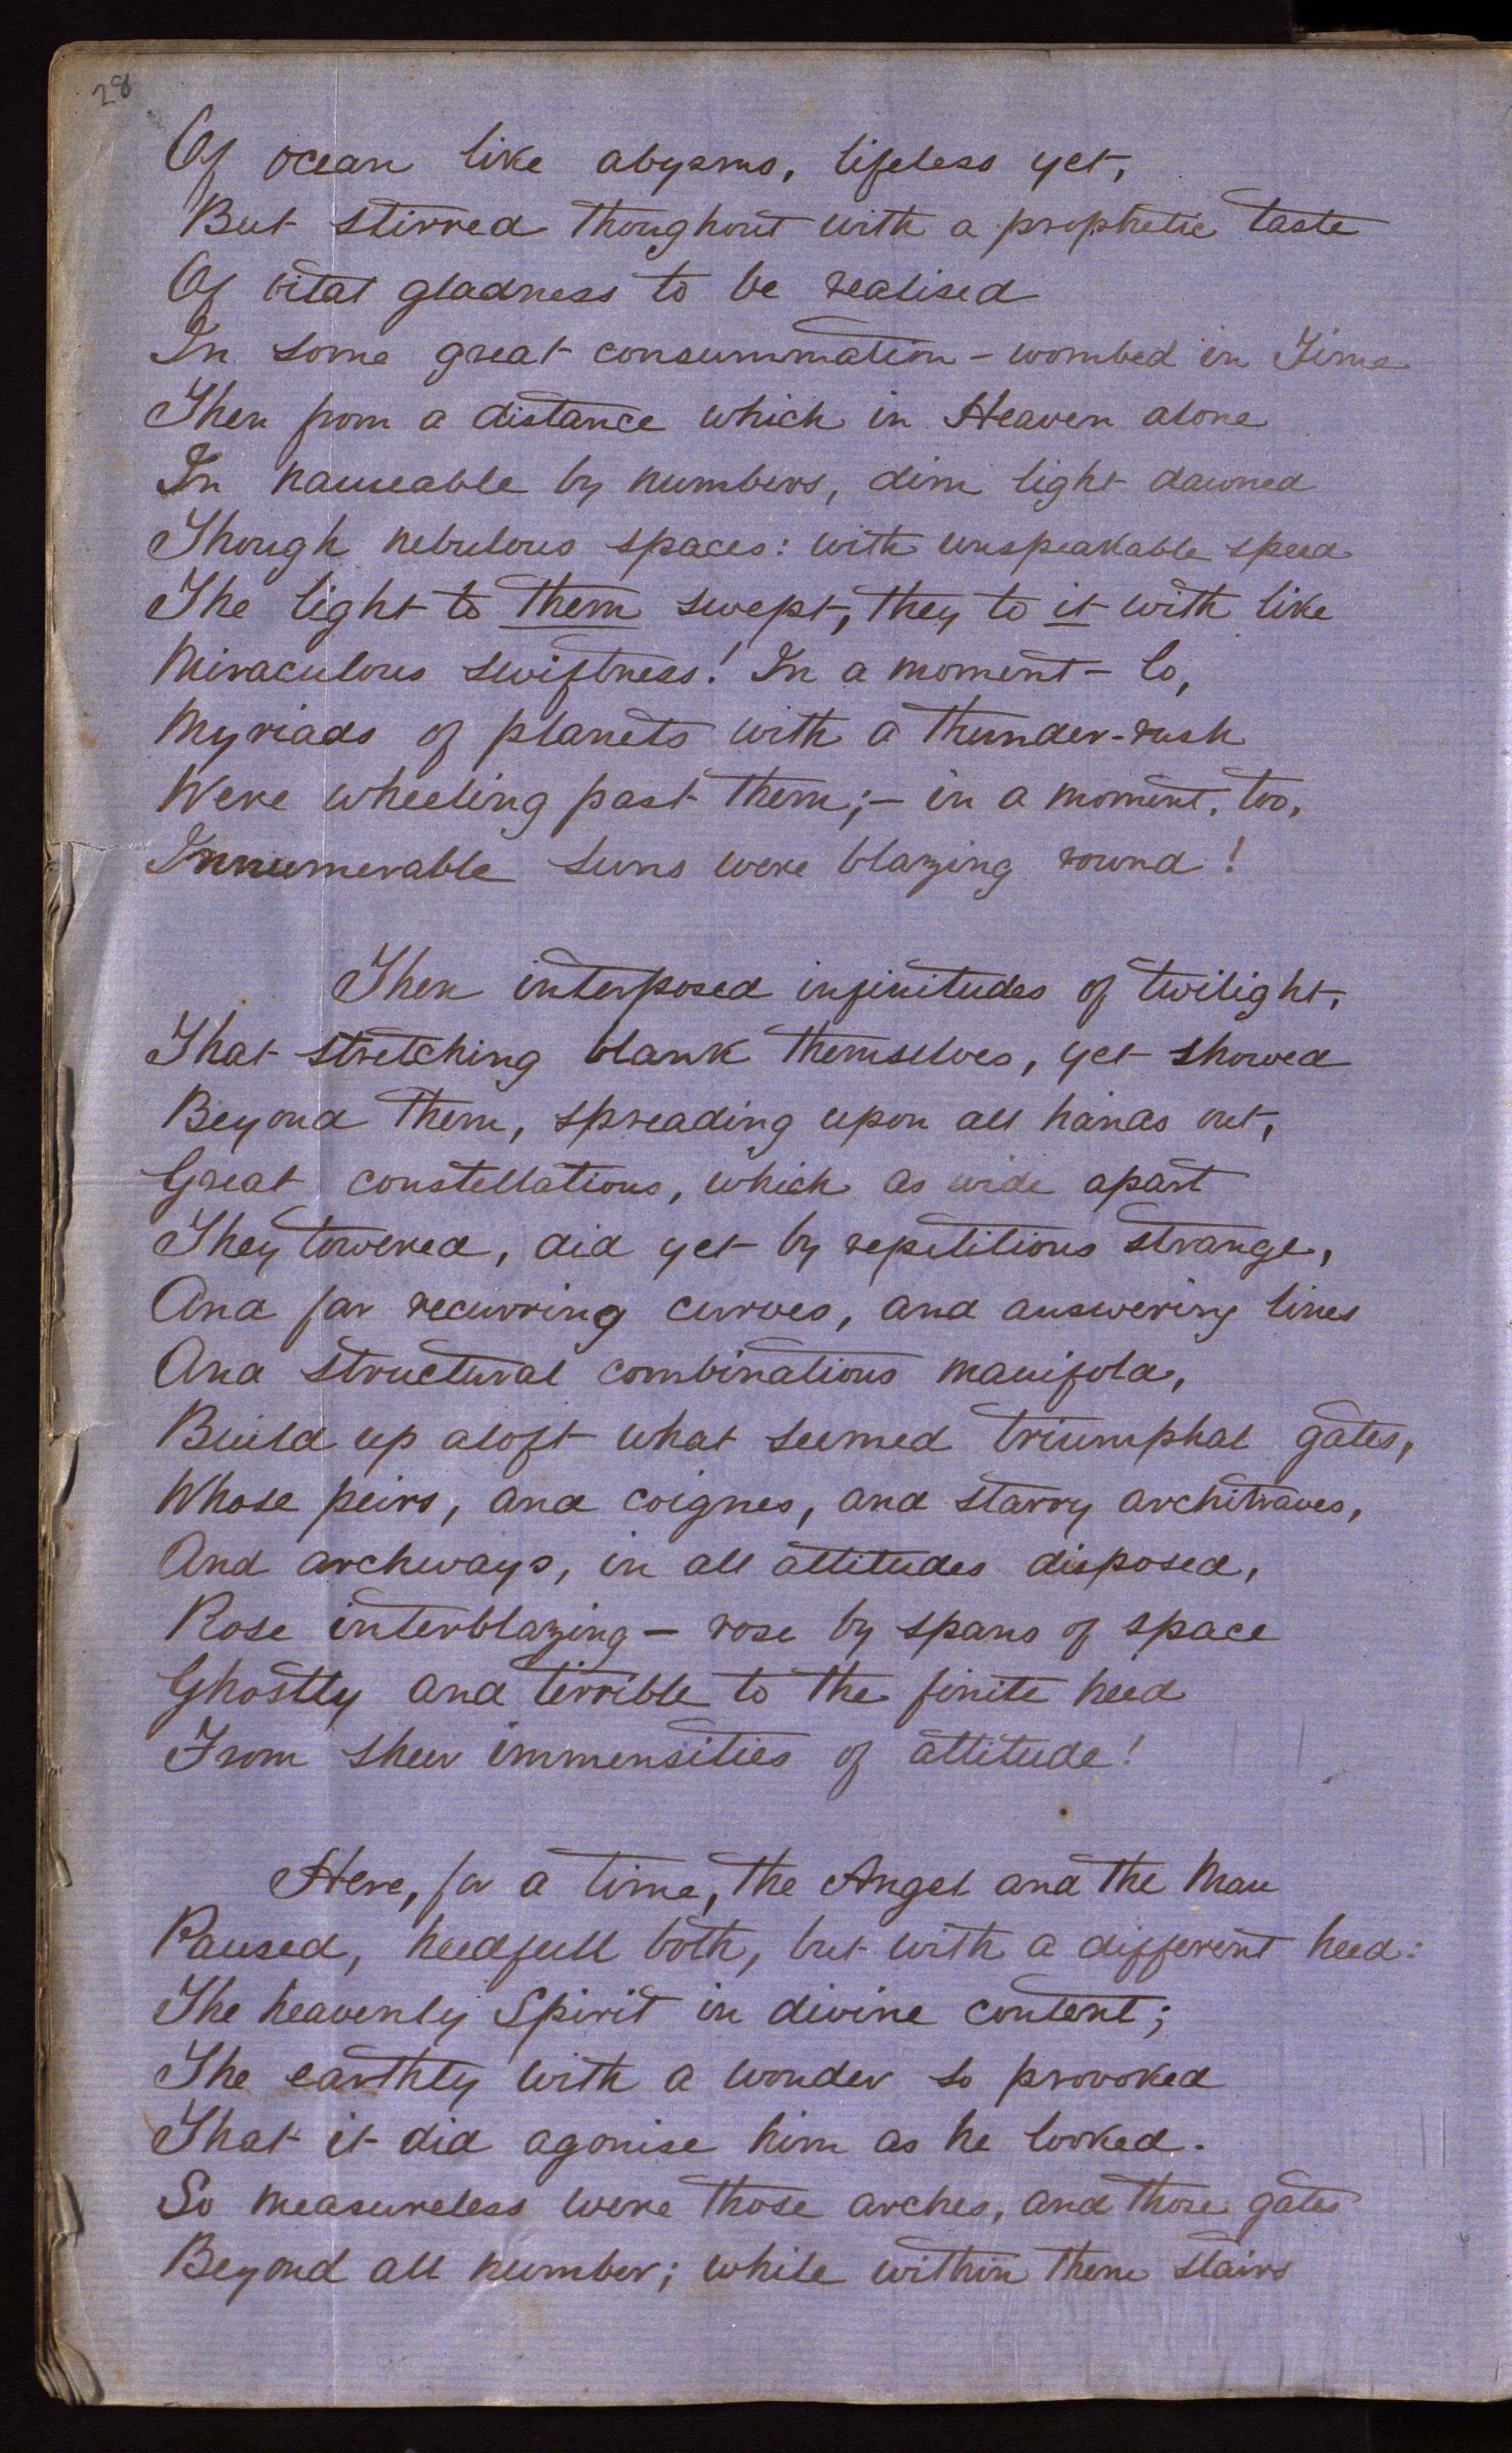 28
Of ocean like abysms, lifeless yet,
But stirred thoughout with a prophetic taste
Of vital gladness to be realised
In some great consummation – wombed in Time
Then from a distance which in Heaven alone
In nameable by numbers, dim light dawned
Though nebulous spaces: with unspeakable speed
The light to them swept, they to it with like
Miraculous swiftness! In a moment – lo,
Myriads of planets with a thunder-rush
Were wheeling past them; – in a moment, too,
Innumerable suns were blazing round!
Then interposed infinitudes of twilight,
That stretching blank themselves, yet showed
Beyond them, spreading upon all hands out,
Great constellations, which as wide apart
They towered, did yet by repetitions strange,
And far recurring curves, and answering lines
And structural combinations manifold,
Build up aloft what seemed triumphal gates,
Whose peirs, and coignes, and starry architraves,
And archways, in all attitudes disposed,
Rose interblazing – rose by spans of space
Ghostly and terrible to the finite heed
From sheer immensities of attitude!
Here, for a time, the Angel and the Man
Paused, heedfull both, but with a different heed:
The heavenly Spirit in divine content;
The earthly with a wonder so provoked
That it did agonise him as he looked.
So measureless were those arches, and those gates
Beyond all number; while within them stairs